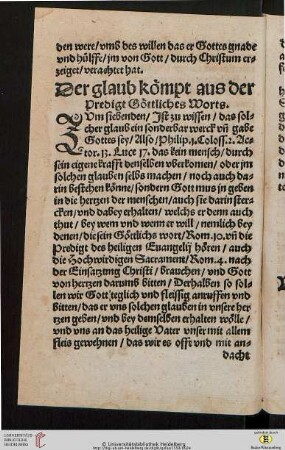 den were/vmb des willen das er Gottes gnade
vnd hülffe/jm von Gott/durch Christum er-
zeiget/verachtet hat.
Der glaub kömpt aus der
Predigt Göttliches Worts.
Zum siebenden/Ist zu wissen/das sol-
cher glaub ein sonderbar werck vn̄ gabe
Gottes sey/Also/Philip.1.Coloss.1.Ac-
tor.13.Luce 17.das kein mensch/durch
sein eigene krafft denselben vberkomen/oder jm
solchen glauben selbs machen/noch auch da-
rin bestehen könne/sondern Gott mus jn geben
in die hertzen der menschen/auch sie darin ster-
cken/vnd dabey erhalten/welchs er denn auch
thut/bey wem vnd wenn er will/nemlich bey
denen/die sein Göttlichs wort/Rom.10.vn̄ die
Predigt des heiligen Euangelij hören/auch
die Hochwirdigen Sacrament/Rom.4.nach
der Einsatzung Christi/brauchen/vnd Gott
von hertzen darumb bitten/Derhalben so sol-
len wir Gott teglich vnd fleissig anruffen vnd
bitten/das er vns solchen glauben in vnsere her-
tzen geben/vnd bey demselben erhalten wölle/
vnd vns an das heilige Vater vnser mit allem
fleis gewehnen/das wir es offt vnd mit an-
dacht
© Universitätsbibliothek Heidelberg